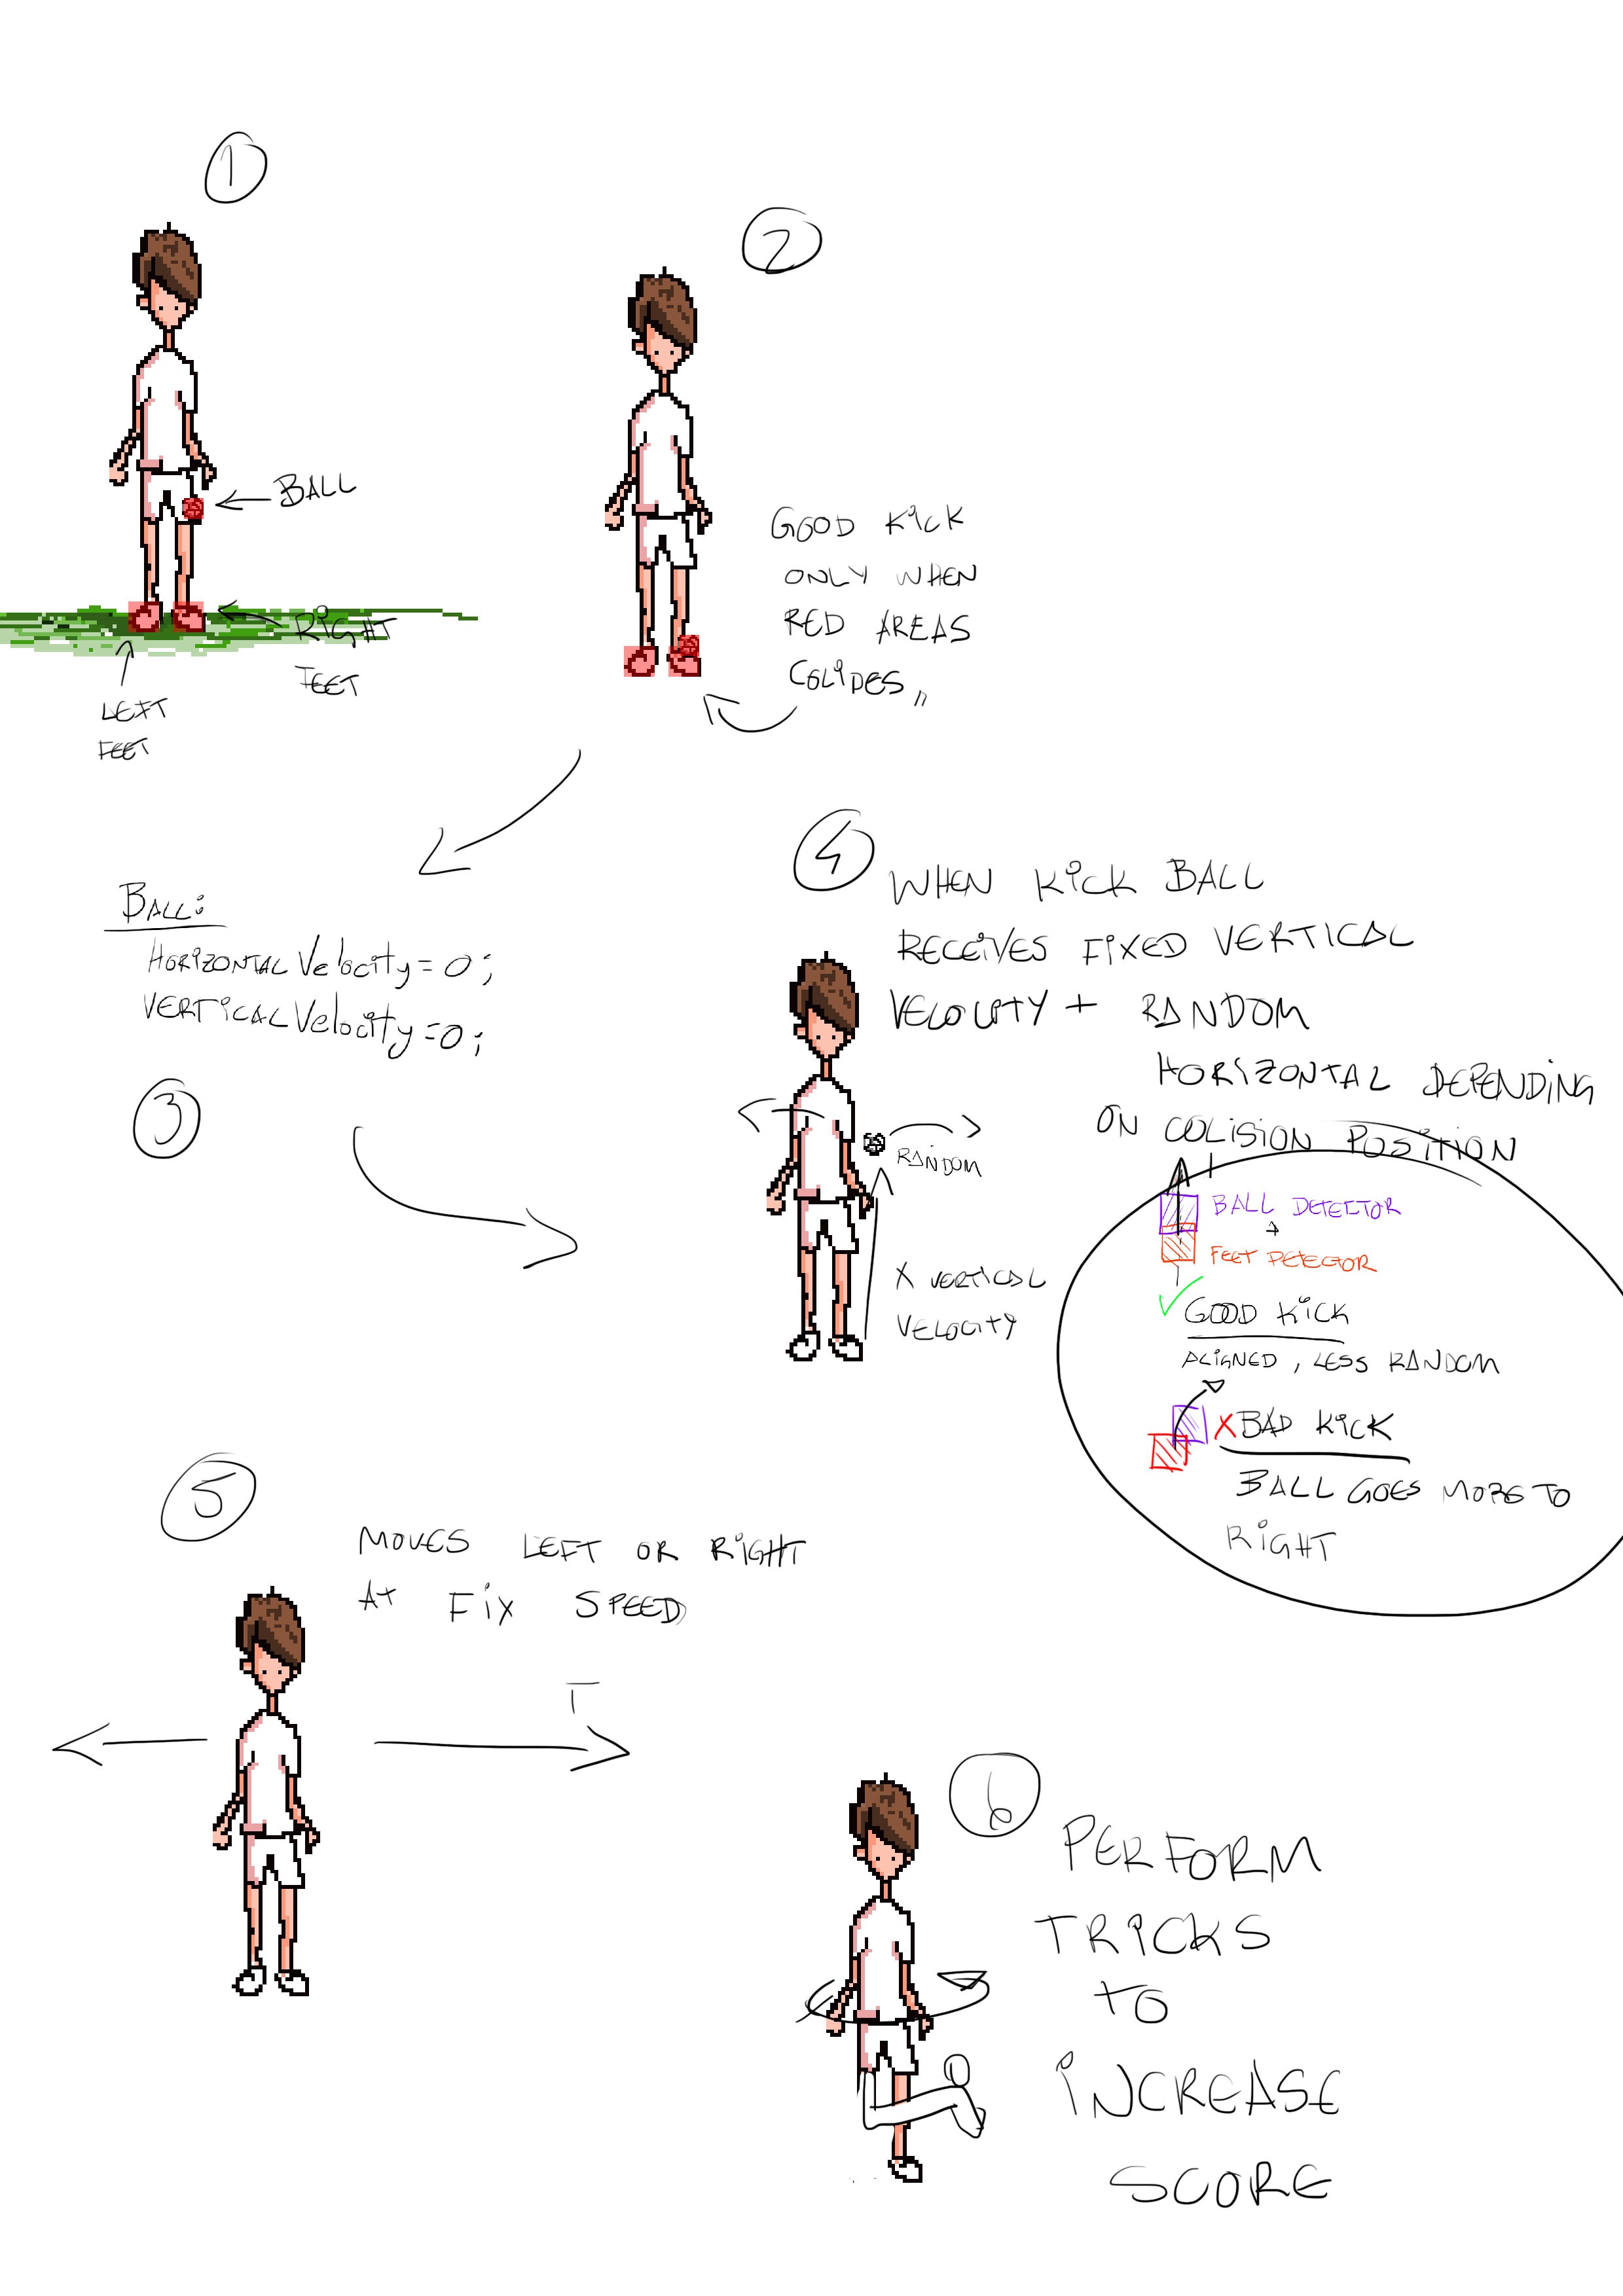 1
BALL
RIGHT
FEET
LEFT
FEET
2
GOOD KICK
ONLY WHEN
RED AREAS
COLIDES,,
BALL:
HORIZONTAL Velocity = 0;
VERTICAL Velocity = 0;
3
4
WHEN KICK BALL
RECEIVES FIXED VERTICAL
VELOCITY + RANDOM
HORIZONTAL DEPENDING
ON COLISION POSITION
RANDOM
X VERTICAL
VELOCITY
BALL DETECTOR
+
FEET DETECTOR
GOOD KICK
ALIGNED, LESS RANDOM
X BAD KICK
BALL GOES MORE TO
RIGHT
5
MOVES LEFT OR RIGHT
AT FIX SPEED
6
PERFORM
TRICKS
TO
INCREASE
SCORE